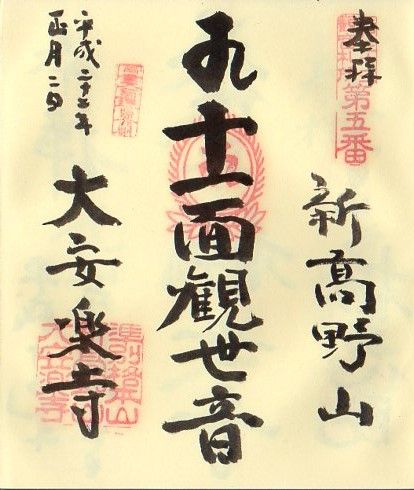 奉拝
第五番
新高野山
十一面観世音
平成二十二年
正月二日
大安楽寺
準別格本山
大安楽寺